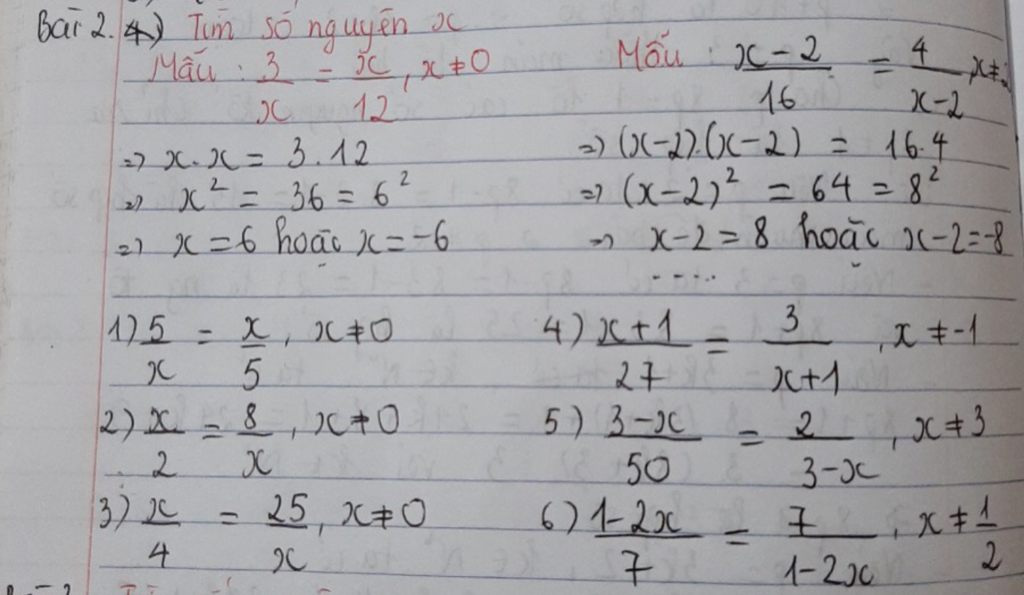 Bài 2. 4) Tìm số nguyên x
Mẫu : 3/x = x/12, x ≠ 0
⇒ x.x = 3.12
⇒ x² = 36 = 6²
⇒ x = 6 hoặc x = -6
Mẫu : x-2/16 = 4/x-2, x ≠
⇒ (x-2).(x-2) = 16.4
⇒ (x-2)² = 64 = 8²
⇒ x-2 = 8 hoặc x-2 = -8
.....
1) 5/x = x/5, x ≠ 0
2) x/2 = 8/x, x ≠ 0
3) x/4 = 25/x, x ≠ 0
4) x+1/27 = 3/x+1, x ≠ -1
5) 3-x/50 = 2/3-x, x ≠ 3
6) 1-2x/7 = 7/1-2x, x ≠ 1/2